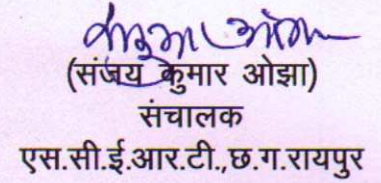 (संजय कुमार ओझा)
संचालक
एस.सी.ई.आर.टी.,छ.ग.रायपुर